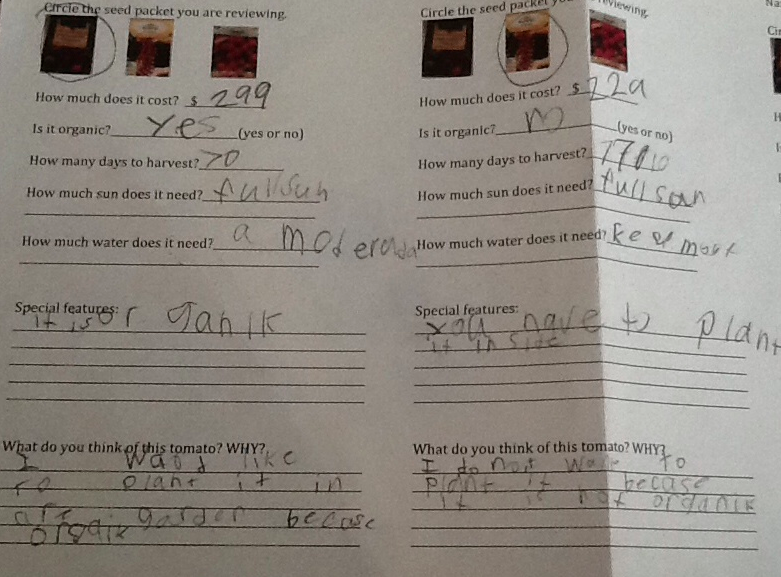 Circle the seed packet you are reviewing.
How much does it cost? $ 299
Is it organic? Yes (yes or no)
How many days to harvest? 70
How much sun does it need? full sun
How much water does it need? a moderada
Special features:
it is or ganik
What do you think of this tomato? WHY?
I Waod like
to plant it in
are garder becase
orgaik
Circle the seed packet reviewing.
How much does it cost? $ 229
Is it organic? (yes or no)
How many days to harvest?
How much sun does it need? full san
How much water does it need?
Special features:
you have to plant
it in side
What do you think of this tomato? WHY?
I do not to
plant it becase
it not organik
Na
Cir
H